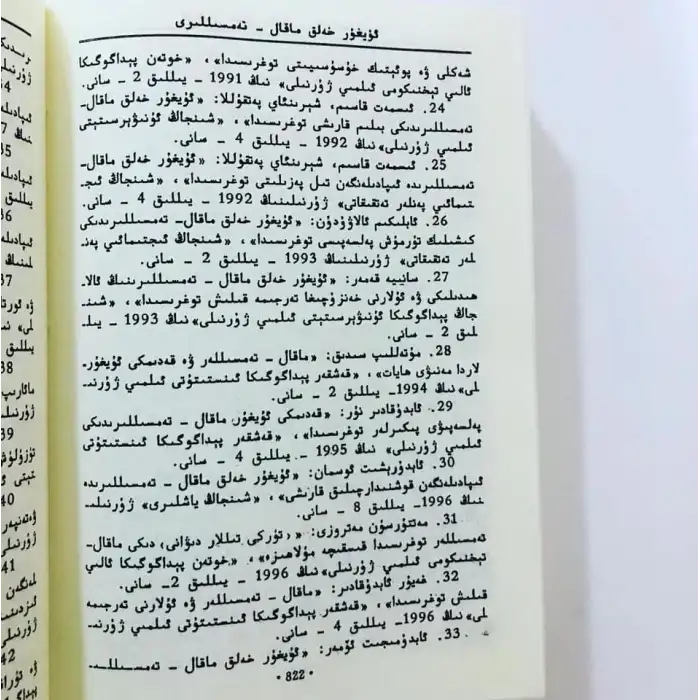 ئۇيغۇر خەلق ماقال - تەمسىللىرى
شەكلى ۋە پوئېتىك خۇسۇسىيىتى توغرىسىدا»، «خوتەن پېداگوگىكا
ئالىي تېخنىكومى ئىلمىي ژۇرنىلى» نىڭ 1991 - يىللىق 2 - سانى.
24. ئىسمەت قاسىم، شېرىنئاي پەتقۇللا: «ئۇيغۇر خەلق ماقال-
تەمسىللىرىدىكى بىلىم قارىشى توغرىسىدا»، «شىنجاڭ ئۇنىۋېرسىتېتى
ئىلمىي ژۇرنىلى» نىڭ 1992 - يىللىق 4 - سانى.
25. ئىسمەت قاسىم، شېرىنئاي پەتقۇللا: «ئۇيغۇر خەلق ماقال-
تەمسىللىرىدە ئىپادىلەنگەن تىل پەزىلىتى توغرىسىدا»، «شىنجاڭ ئىج-
تىمائىي پەنلەر تەتقىقاتى» ژۇرنىلىنىڭ 1992 - يىللىق 4 - سانى.
26. ئابلىكىم ئالاۋۇدۇن: «ئۇيغۇر خەلق ماقال- تەمسىللىرىدىكى
كىشىلىك تۇرمۇش پەلسەپىسى توغرىسىدا»، «شىنجاڭ ئىجتىمائىي پەن-
لەر تەتقىقاتى» ژۇرنىلىنىڭ 1993 - يىللىق 2 - سانى.
27. سانىيە قەمەر: «ئۇيغۇر خەلق ماقال - تەمسىللىرىنىڭ ئالا-
ھىدىلىكى ۋە ئۇلارنى خەنزۇچىغا تەرجىمە قىلىش توغرىسىدا»، «شىن-
جاڭ پېداگوگىكا ئۇنىۋېرسىتېتى ئىلمىي ژۇرنىلى» نىڭ 1993 - يىل-
لىق 2 - سانى.
28. مۇتەللىپ سىدىق: «ماقال - تەمسىللەر ۋە قەدىمكى ئۇيغۇر-
لاردا مەنىۋى ھايات»، «قەشقەر پېداگوگىكا ئىنستىتۇتى ئىلمىي ژۇرنى-
لى» نىڭ 1994- يىللىق 2 - سانى.
29. ئابدۇقادىر نۇر: «قەدىمكى ئۇيغۇر ماقال - تەمسىللىرىدىكى
پەلسەپىۋى پىكىرلەر توغرىسىدا»، «قەشقەر پېداگوگىكا ئىنستىتۇتى
ئىلمىي ژۇرنىلى» نىڭ 1995 - يىللىق 4 - سانى.
30. ئابدۇرېشىت ئوسمان: «ئۇيغۇر خەلق ماقال - تەمسىللىرىدە
ئىپادىلەنگەن قوشنىدارچىلىق قارىشى»، «شىنجاڭ ياشلىرى» ژۇرنىلى-
نىڭ 1996- يىللىق 8 - سانى.
31. مەتتۇرسۇن مەتروزى: «‹تۈركى تىللار دىۋانى› دىكى ماقال-
تەمسىللەر توغرىسىدا قىسقىچە مۇلاھىزە»، «خوتەن پېداگوگىكا ئالىي
تېخنىكومى ئىلمىي ژۇرنىلى» نىڭ 1996 - يىللىق 2- سانى.
32. غەيۇر ئابدۇقادىر: «ماقال - تەمسىللەر ۋە ئۇلارنى تەرجىمە
قىلىش توغرىسىدا»، «قەشقەر پېداگوگىكا ئىنستىتۇتى ئىلمىي ژۇرنى-
لى» نىڭ 1996 - يىللىق 4 - سانى.
33. ئابدۇمىجىت ئۆمەر: «ئۇيغۇر خەلق ماقال - تەمسىللى-
· 822 ·